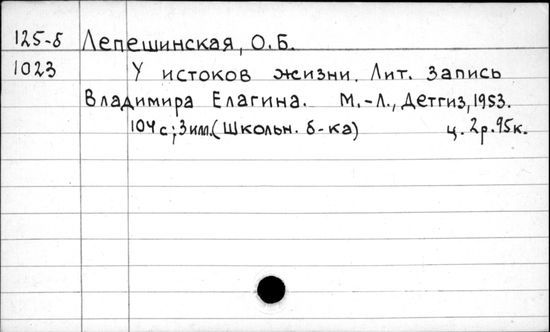 125-б Лепешинская, О.Б.
1023 У истоков жизни. Лит. запись
Владимира Елагина. М.-Л., Детгиз, 1953.
104 с; 3 илл. (Школьн. б-ка) ц. 2р. 95к.